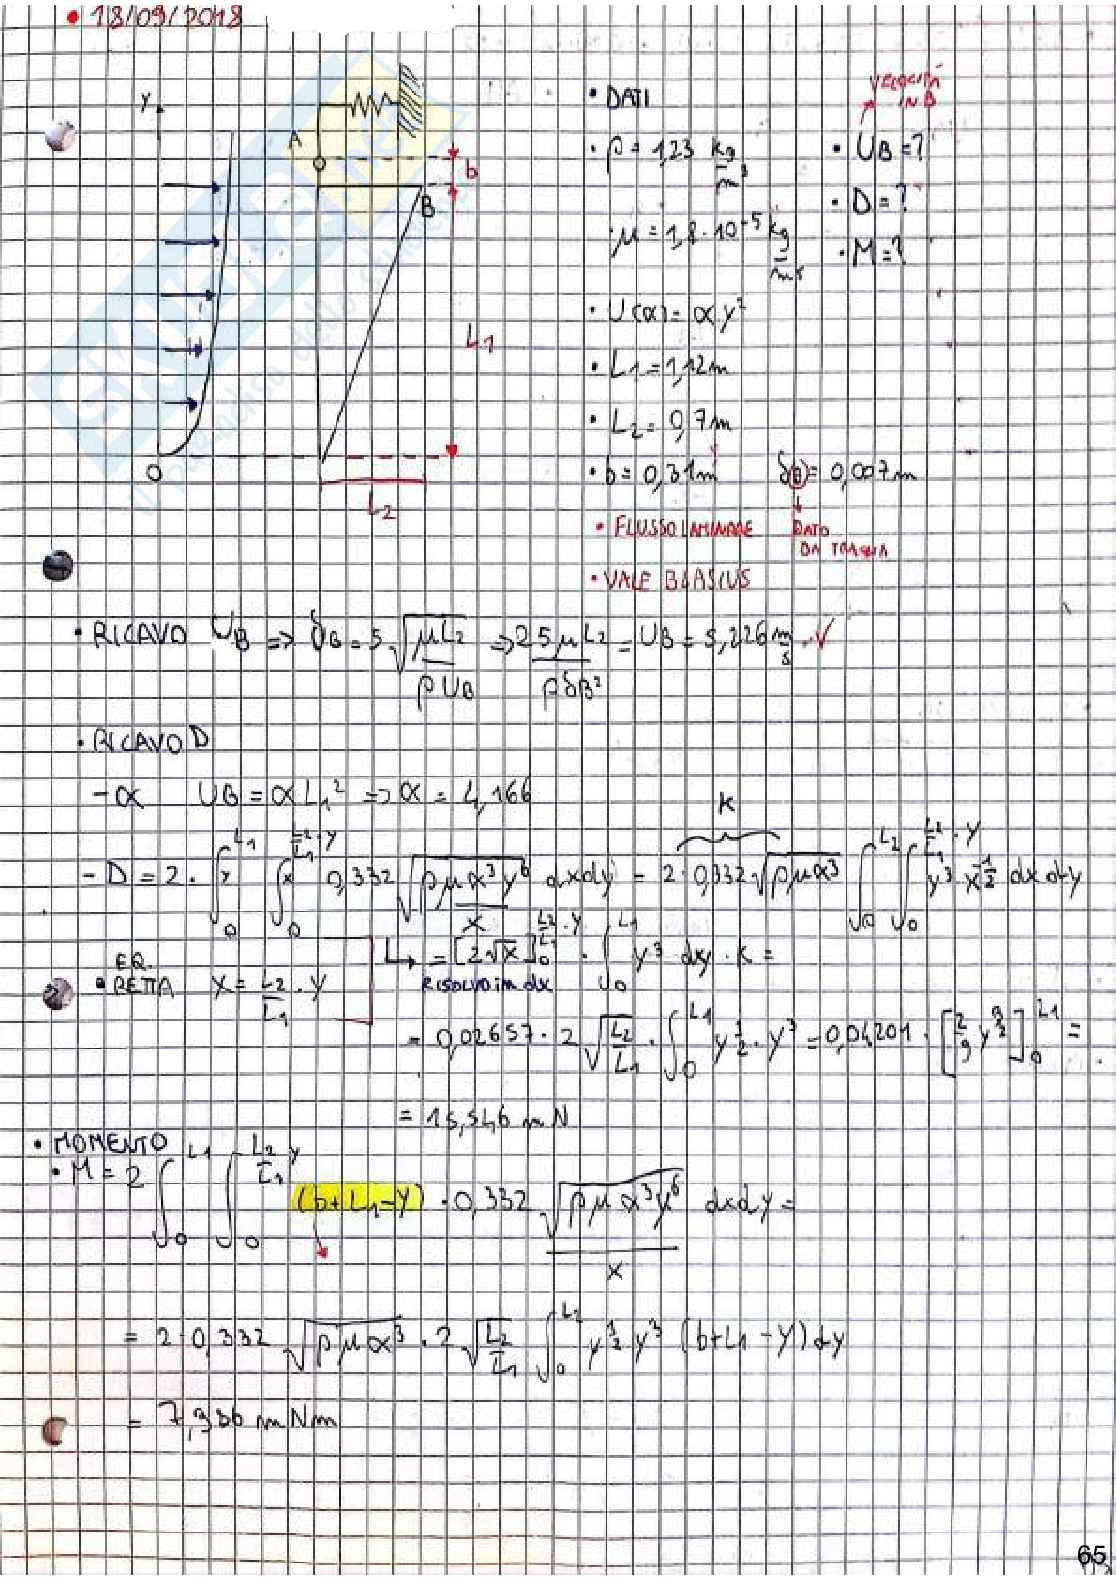 • 18/09/2018
Y
A
b
B
L1
O
L2
• DATI
VELOCITÀ IN B
• ρ = 1,23 kg/m³
• UB = ?
• D = ?
• μ = 1,8·10⁻⁵ kg/ms
• M = ?
• U(x) = α y²
• L1 = 1,12 m
• L2 = 0,7 m
• b = 0,31 m    δ(B) = 0,007 m
• FLUSSO LAMINARE
DATO DA TRACCIA
• VALE BLASIUS
• RICAVO UB => δB = 5 √(μL2/ρUB) => 25μL2/ρδB² = UB = 5,226 m/s √
• RICAVO D
- α    UB = αL1² => α = 4,166
K
- D = 2 · ∫₀^L1 ∫₀^(L2/L1 · y) 0,332 √(ρμα³y⁶/x) dxdy = 2·0,332 √(ρμα³) ∫₀^L2 ∫₀^(L2/L1 · y) y³ x^-1/2 dx dy
EQ.
• RETTA    x = L2/L1 · y
↳ = [2√x]₀^(L2/L1 · y) · ∫₀^L1 y³ dy · K =
RISOLVO in dx
= 0,02657 · 2 √(L2/L1) · ∫₀^L1 y^1/2 · y³ = 0,04201 · [2/9 y^9/2]₀^L1 =
= 15,546 mN
• MOMENTO
• M = 2 ∫₀^L1 ∫₀^(L2/L1 y) (b+L1-y) · 0,332 √(ρμα³y⁶)/x dxdy =
= 2·0,332 √(ρμα³) · 2 √(L2/L1) ∫₀^L2 y^1/2 y³ (b+L1-y) dy
= 7,336 mNm
65